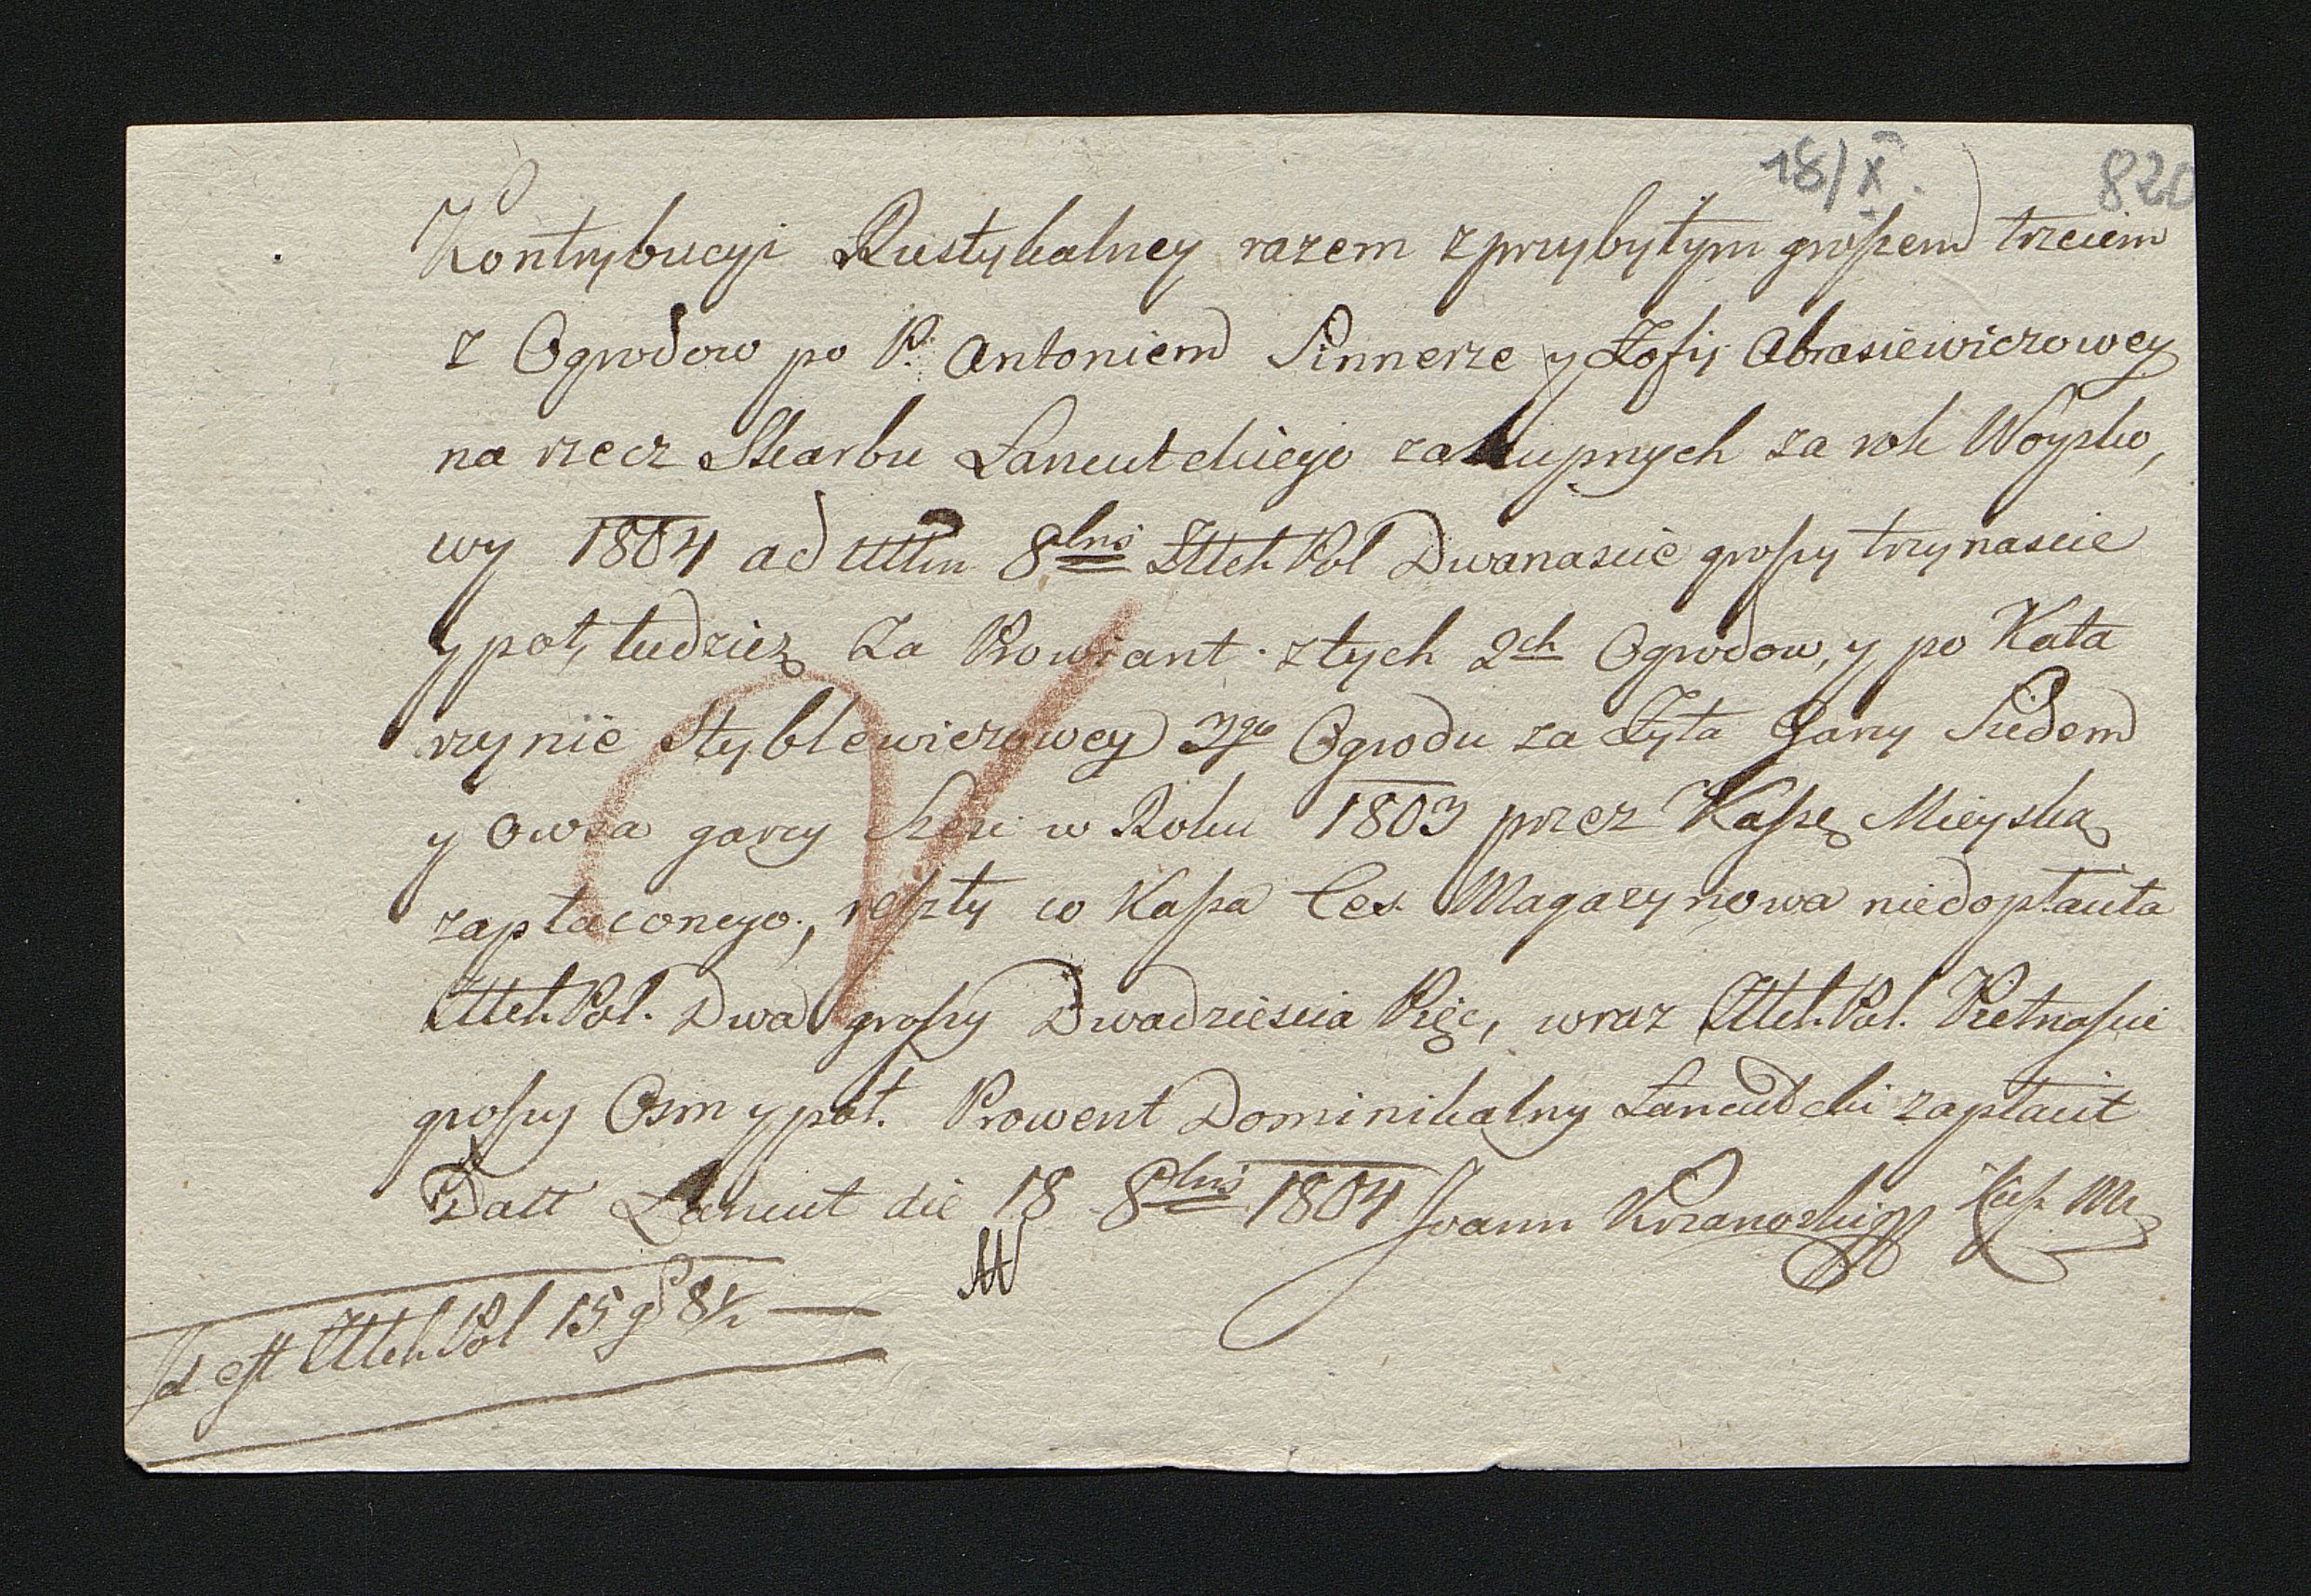 18/X. 820
Kontrybucyi Rustykalney razem z przybyłym groszem trzeciem
z Ogrodow po P. Antoniem Pinnerze y Zofij Abrasiewiczowey
na rzecz Skarbu Łancutckiego zakupnych za rok Woysko,
wy 1804 ad Ultm 8bris Złłch Pol Dwanascie groszy trzynascie
y poł, tudziez Za Prowiant z tych 2ch Ogrodow, y po Kata
rzynie Styblewiczowey 3go Ogrodu za Zyta Garcy Siedem
y Owsa garcy Szesc w Roku 1803 przez Kassę Mieyską
zapłaconego, reszty w Kassa Ces. Magazynowa niedopłacita
Złłch Pol. Dwa groszy Dwadziescia Pięc, wraz Złłch Pol. Pietnascie
groszy Osm y poł. Prowent Dominikalny Łancutcki zapłacił
Datt Łancut die 18 8bris 1804 Joann Krzanoski
Id est Złłch Pol 15 gr 8½